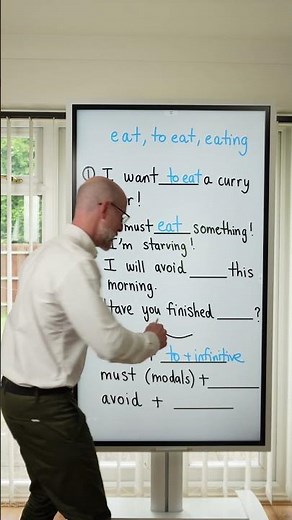 eat, to eat, eating
① I want to eat a curry
r!
must eat something!
I'm starving!
I will avoid ____ this
morning.
Have you finished ____?
to + infinitive
must (modals) + ____
avoid + ____